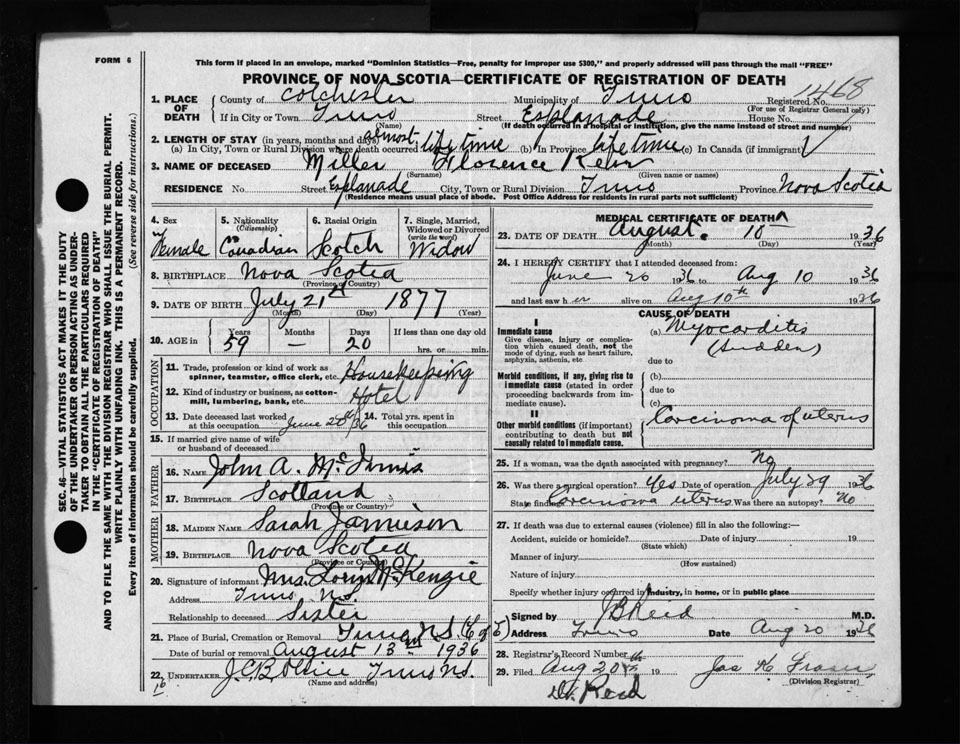 FORM 6
This form if placed in an envelope, marked "Dominion Statistics—Free, penalty for improper use $300," and properly addressed will pass through the mail "FREE"
PROVINCE OF NOVA SCOTIA—CERTIFICATE OF REGISTRATION OF DEATH
1468
1. PLACE OF DEATH County of Colchester Municipality of Truro Registered No.
(For use of Registrar General only)
If in City or Town Truro Street Esplanade House No.
(Name) (If death occurred in a hospital or institution, give the name instead of street and number)
2. LENGTH OF STAY (in years, months and days) almost
(a) In City, Town or Rural Division where death occurred life time (b) In Province life time (c) In Canada (if immigrant)
3. NAME OF DECEASED Miller Florence
(Surname) (Given name or names)
RESIDENCE No. Street Esplanade City, Town or Rural Division Truro Province Nova Scotia
(Residence means usual place of abode. Post Office Address for residents in rural parts not sufficient)
4. Sex 5. Nationality (Citizenship) 6. Racial Origin 7. Single, Married, Widowed or Divorced (write the word)
Female Canadian Scotch Widow
8. BIRTHPLACE Nova Scotia
(Province or Country)
9. DATE OF BIRTH July 21st 1877
(Month) (Day) (Year)
10. AGE in Years Months Days If less than one day old
59 — 20 hrs. or min.
OCCUPATION
11. Trade, profession or kind of work as spinner, teamster, office clerk, etc. Housekeeping
12. Kind of industry or business, as cotton-mill, lumbering, bank, etc. Hotel
13. Date deceased last worked at this occupation June 20th/36 14. Total yrs. spent in this occupation
15. If married give name of wife or husband of deceased
FATHER
16. NAME John A. McInnis
17. BIRTHPLACE Scotland
(Province or Country)
MOTHER
18. MAIDEN NAME Sarah Jamieson
19. BIRTHPLACE Nova Scotia
(Province or Country)
20. Signature of informant Mrs. McKenzie
Address Truro N.S.
Relationship to deceased Sister
21. Place of Burial, Cremation or Removal Truro N.S.
Date of burial or removal August 13th 1936
22. UNDERTAKER Truro N.S.
(Name and address)
16
MEDICAL CERTIFICATE OF DEATH
23. DATE OF DEATH August 10th 1936
(Month) (Day) (Year)
24. I HEREBY CERTIFY that I attended deceased from:
June 20 1936 to Aug 10 1936
and last saw her alive on Aug 10th 1936
CAUSE OF DEATH
I
Immediate cause (a) Myocarditis
Give disease, injury or complication which caused death, not the mode of dying, such as heart failure, asphyxia, asthenia, etc
(Sudden)
due to
Morbid conditions, if any, giving rise to immediate cause (stated in order proceeding backwards from immediate cause).
(b)
due to
(c)
II
Other morbid conditions (if important) contributing to death but not causally related to immediate cause.
Carcinoma of uterus
25. If a woman, was the death associated with pregnancy? No
26. Was there a surgical operation? Yes Date of operation July 29 1936
State findings Carcinoma uterus Was there an autopsy? No
27. If death was due to external causes (violence) fill in also the following:—
Accident, suicide or homicide? Date of injury 19
(State which)
Manner of injury
(How sustained)
Nature of injury
Specify whether injury occurred in industry, in home, or in public place
Signed by J B Reid M.D.
Address Truro Date Aug 20 1936
28. Registrar's Record Number
29. Filed Aug 20th 19 Jas
(Division Registrar)
Dr. Reid
SEC. 46—VITAL STATISTICS ACT MAKES IT THE DUTY
OF THE UNDERTAKER OR PERSON ACTING AS UNDER-
TAKER TO OBTAIN ALL THE PARTICULARS REQUIRED
IN THE "CERTIFICATE OF REGISTRATION OF DEATH"
AND TO FILE THE SAME WITH THE DIVISION REGISTRAR WHO SHALL ISSUE THE BURIAL PERMIT.
WRITE PLAINLY WITH UNFADING INK. THIS IS A PERMANENT RECORD.
Every item of information should be carefully supplied. (See reverse side for instructions.)